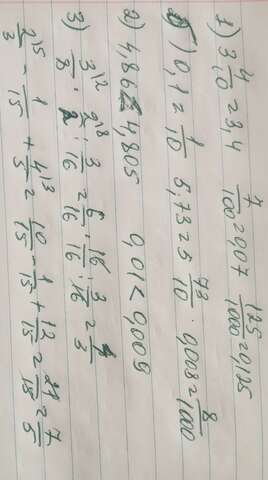 1) 3 4/10 = 3,4   7/100 = 0,07   125/1000 = 0,125
б) 0,1 = 1/10   5,73 = 5 73/10 . 0,008 = 8/1000
2) 4,86 < 4,805   0,01 < 0,009
3) 3/8 : 3/16 = 6/16 : 16/16 : 3/16 =
2/3 - 1/15 + 4/5 = 10/15 - 1/15 + 12/15 = 21/15 = 7/5